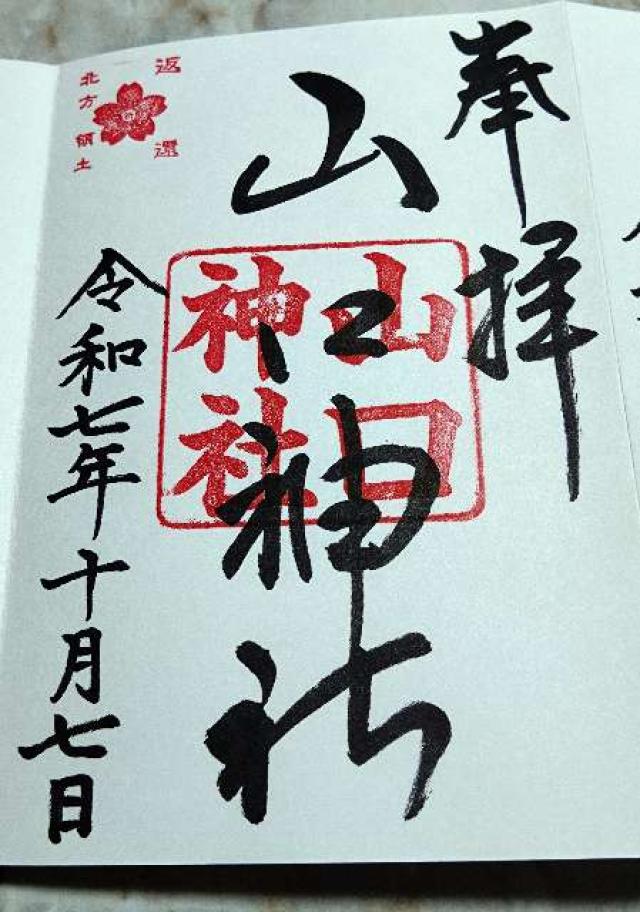 奉拝
山口神社
山口
神社
返還
北方領土
令和七年十月七日